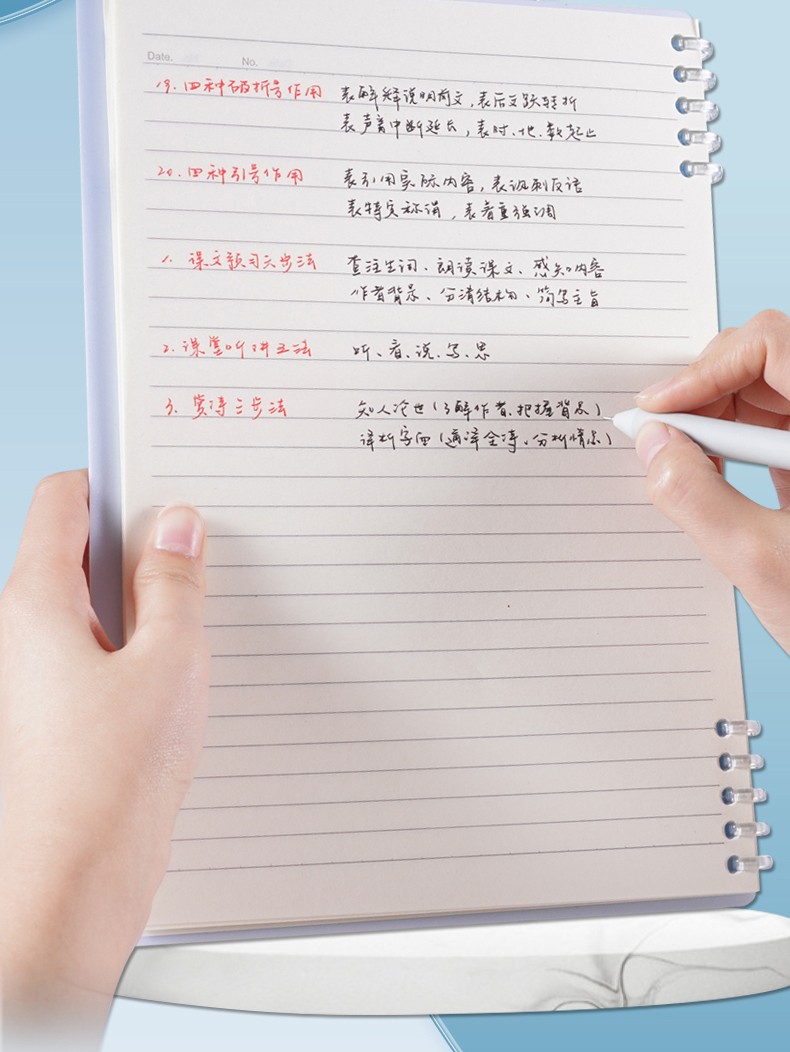 Date. No.
19.四种破折号作用 表解释说明前文,表后文跃转折
表声音中断延长,表时、地、数起止
20.四种引号作用 表引用实际内容,表讽刺反语
表特定称谓,表着重强调
1.课文预习六步法 查注生词、朗读课文、感知内容
作者背景、分清结构、简写主旨
2.课堂听讲五法 听、看、说、写、思
3.赏诗三步法 知人论世(了解作者、把握背景)
译析字面(通译全诗、分析情景)